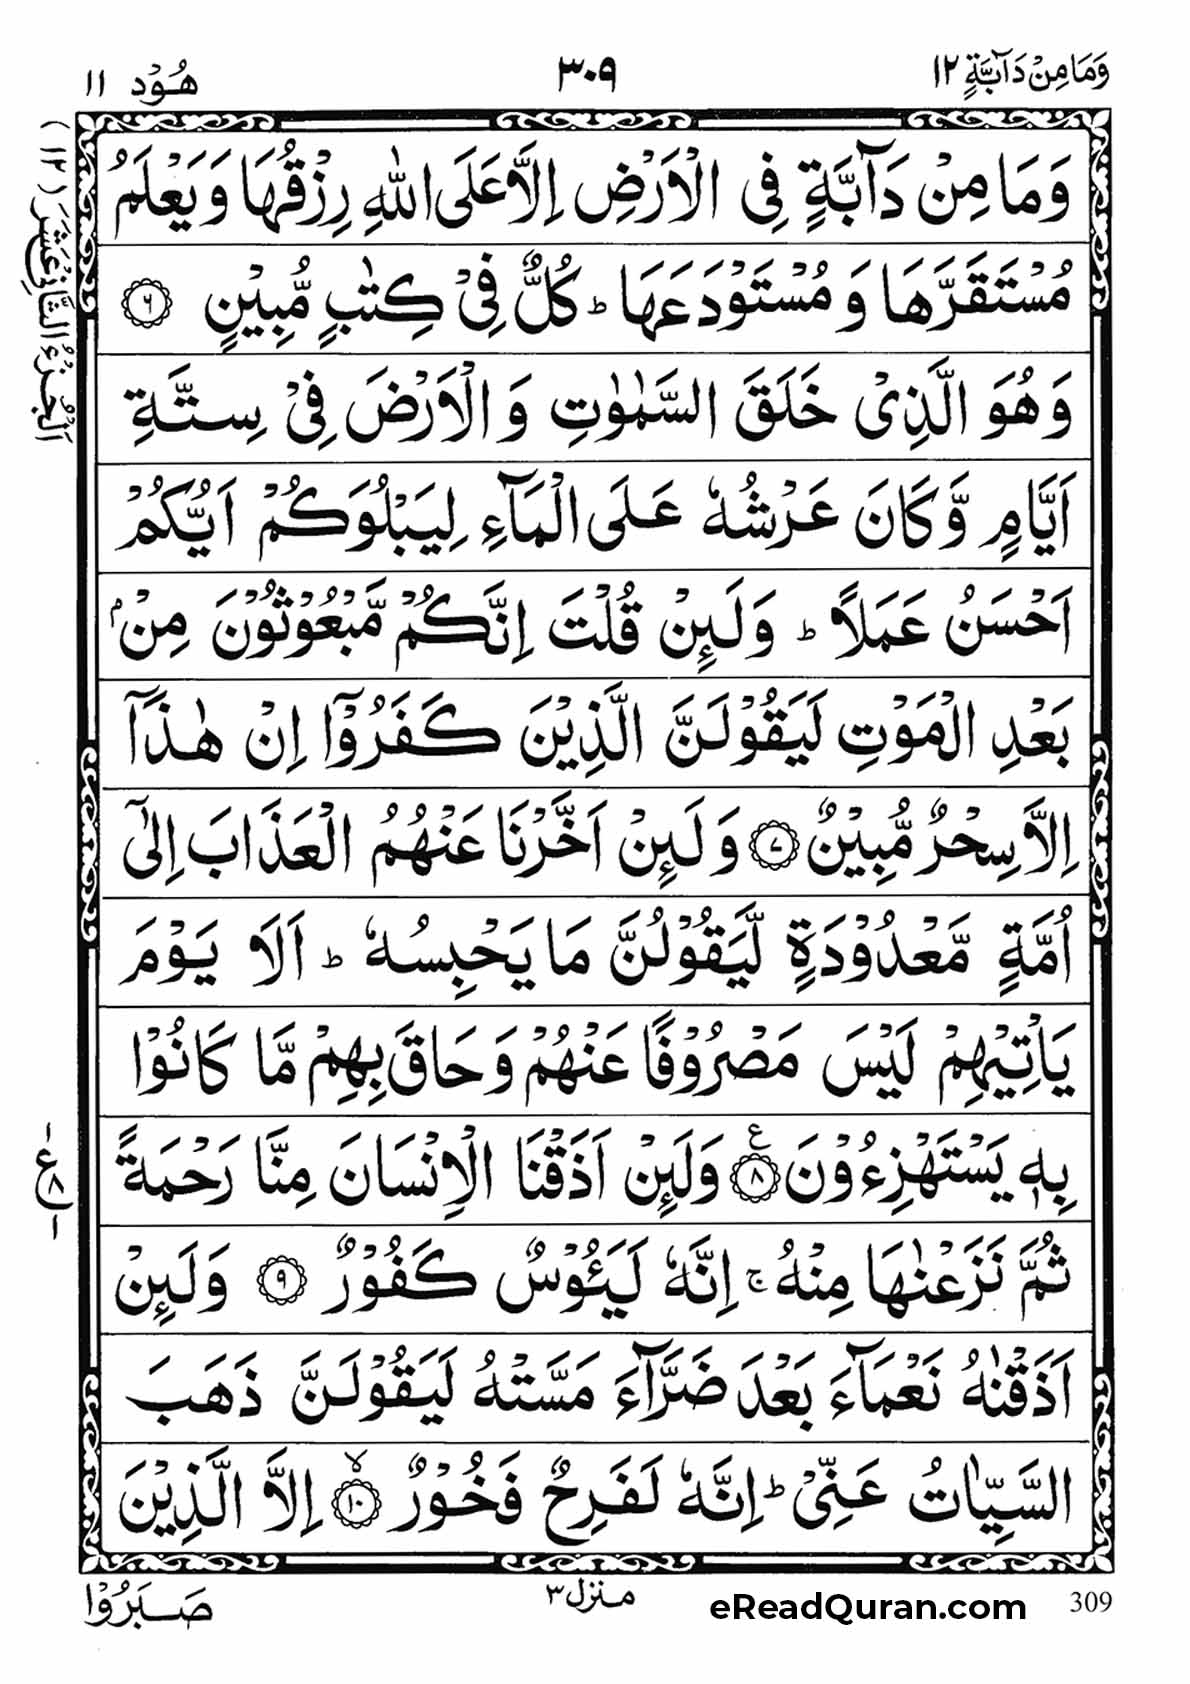 وَمَا مِنْ دَآبَّةٍ ١٢
٣٠٩
هُوْد ١١
وَمَا مِنْ دَآبَّةٍ فِى الْاَرْضِ اِلَّا عَلَى اللّٰهِ رِزْقُهَا وَيَعْلَمُ
مُسْتَقَرَّهَا وَ مُسْتَوْدَعَهَا ؕ كُلٌّ فِىْ كِتٰبٍ مُّبِيْنٍ ٦
وَهُوَ الَّذِىْ خَلَقَ السَّمٰوٰتِ وَ الْاَرْضَ فِىْ سِتَّةِ
اَيَّامٍ وَّ كَانَ عَرْشُهٗ عَلَى الْمَآءِ لِيَبْلُوَكُمْ اَيُّكُمْ
اَحْسَنُ عَمَلًا ؕ وَلَئِنْ قُلْتَ اِنَّكُمْ مَّبْعُوْثُوْنَ مِنْۢ
بَعْدِ الْمَوْتِ لَيَقُوْلَنَّ الَّذِيْنَ كَفَرُوْۤا اِنْ هٰذَاۤ
اِلَّا سِحْرٌ مُّبِيْنٌ ٧ وَلَئِنْ اَخَّرْنَا عَنْهُمُ الْعَذَابَ اِلٰٓى
اُمَّةٍ مَّعْدُوْدَةٍ لَّيَقُوْلُنَّ مَا يَحْبِسُهٗ ؕ اَلَا يَوْمَ
يَاْتِيْهِمْ لَيْسَ مَصْرُوْفًا عَنْهُمْ وَ حَاقَ بِهِمْ مَّا كَانُوْا
بِهٖ يَسْتَهْزِءُوْنَ ٨ ع وَلَئِنْ اَذَقْنَا الْاِنْسَانَ مِنَّا رَحْمَةً
ثُمَّ نَزَعْنٰهَا مِنْهُ ۚ اِنَّهٗ لَيَئُوْسٌ كَفُوْرٌ ٩ وَلَئِنْ
اَذَقْنٰهُ نَعْمَآءَ بَعْدَ ضَرَّآءَ مَسَّتْهُ لَيَقُوْلَنَّ ذَهَبَ
السَّيِّاٰتُ عَنِّىْ ؕ اِنَّهٗ لَفَرِحٌ فَخُوْرٌ ١٠ ۙ اِلَّا الَّذِيْنَ
صَبَرُوْا
منزل ٣
eReadQuran.com
309
اَلْجُزْءُ الثَّانِىْ عَشَرَ (١٢)
ع ٨